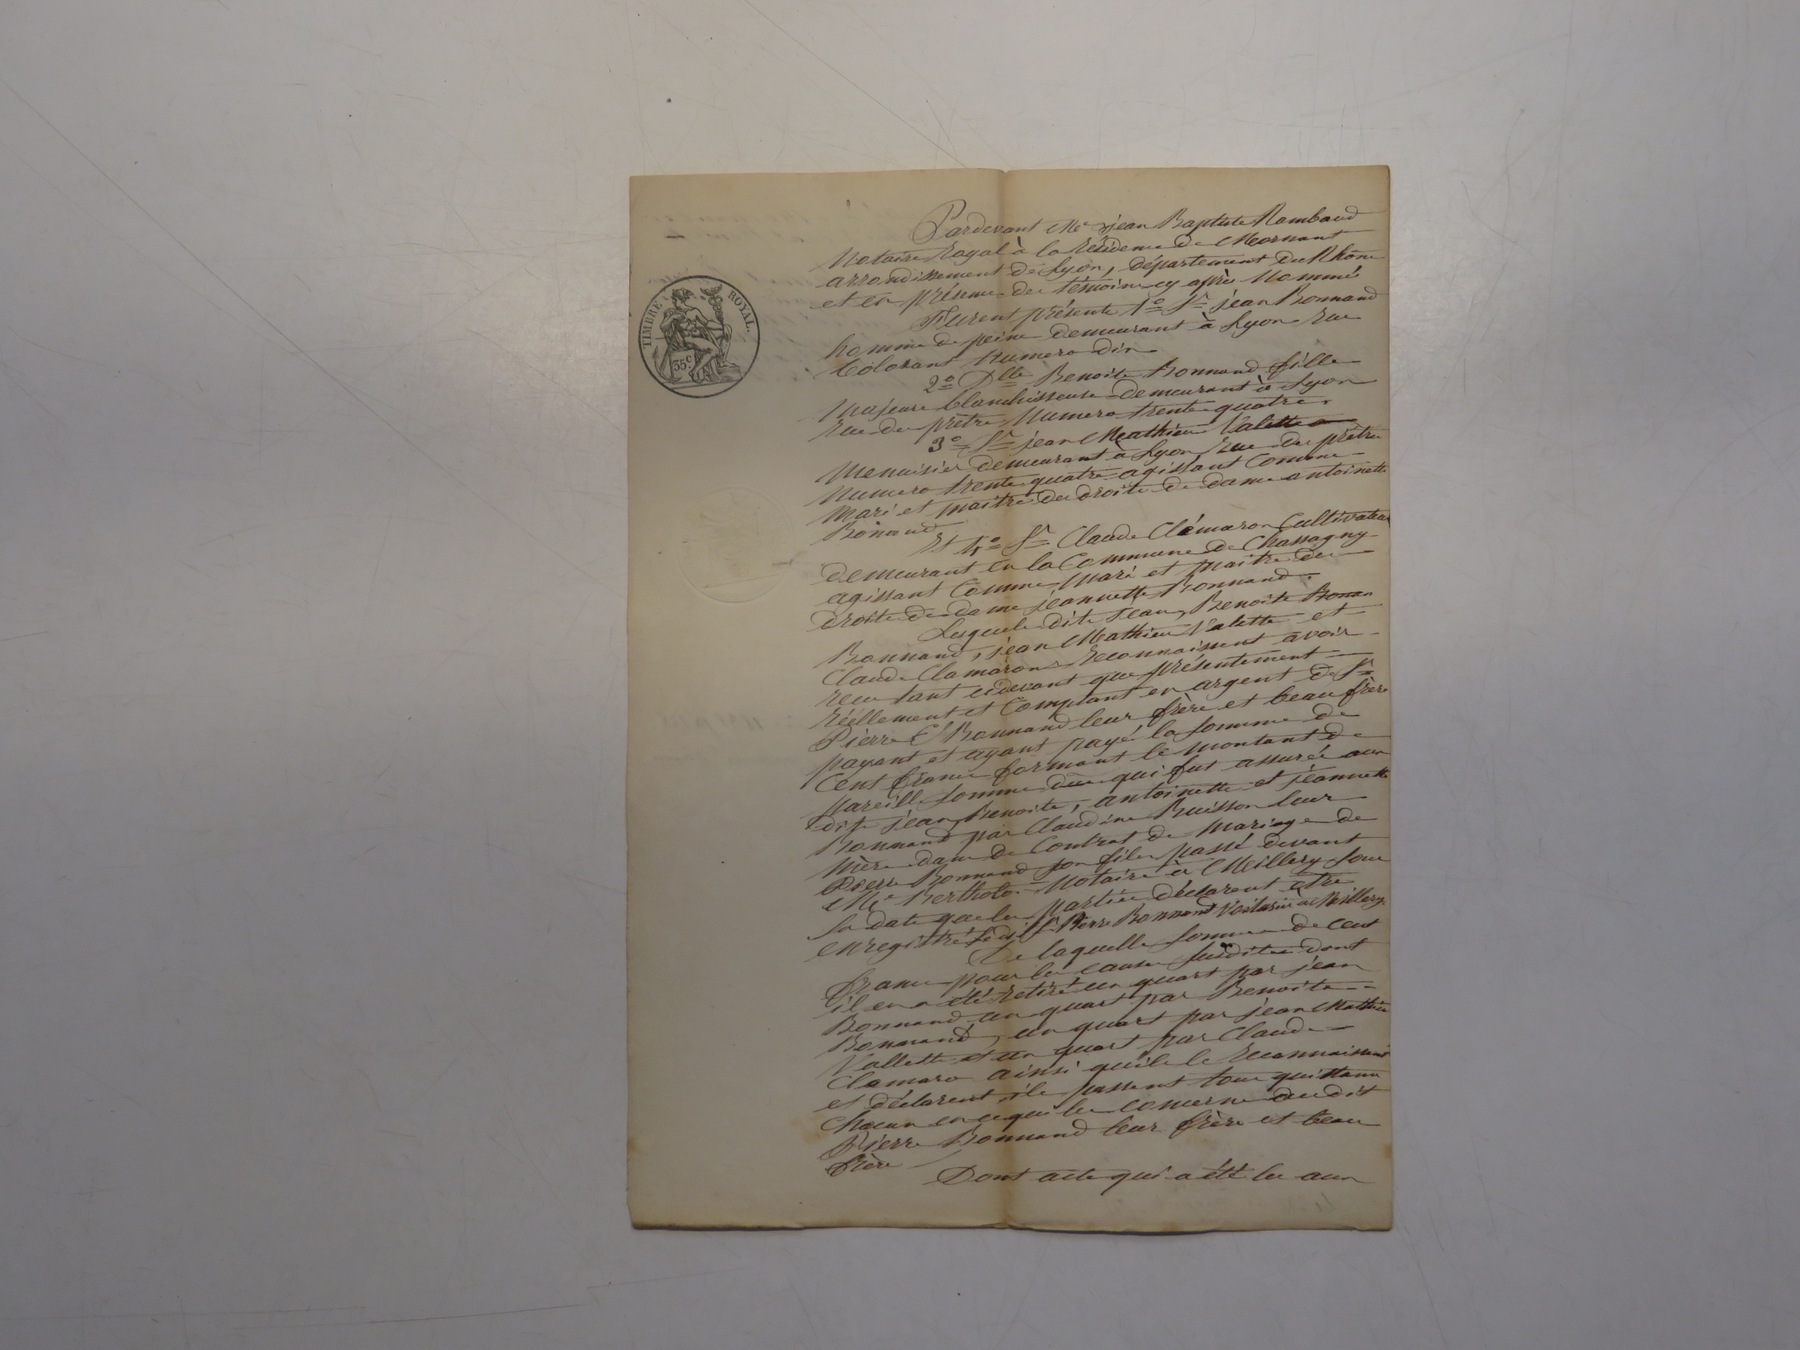 TIMBRE ROYAL.
35.c
Pardevant Me jean Baptiste Rambaud
Notaire Royal à la résidence de Mornant
arrondissement de Lyon, département du Rhône
et en présence des témoins cy après nommés
Furent présents 1o Sr jean Bonnand
homme de peine demeurant à Lyon rue
numero dix
2o Dlle Benoite Bonnand fille
majeure blanchisseuse demeurant à Lyon
rue des prêtres numero trente quatre.
3o Sr jean Mathieu Valette
menuisier demeurant à Lyon rue des prêtres
numero trente quatre agissant comme
mari et maitre des droits de dame antoinette
Bonnand
Et 4o Sr Claude Clémaron Cultivateur
demeurant en la Commune de Chassagny
agissant Comme mari et maitre des
droits de dame jeannette Bonnand.
Lesquels dits jean, Benoite
Bonnand, jean Mathieu Valette et
Claude Clamaron reconnaissent avoir
reçu tant cidevant que présentement
réellement et Comptant en argent de Sr
Pierre Bonnand leur frère et beau frère
payant et ayant payé la somme de
Cent francs formant le montant de
pareille somme due qui fut assurée aux
dits jean, Benoite, antoinette et jeannette
Bonnand par Claudine Buisson leur
mère dans le Contrat de mariage de
Pierre Bonnand son fils passé devant
Me Bertholon Notaire à Millery sous
sa date que les parties déclarent être
enregistré Pierre Bonnand Voiturier à Millery.
De laquelle somme de cent
francs pour les causes susdites dont
il en a été retiré un quart par jean
Bonnand un quart par Benoite
Bonnand, un quart par jean Mathieu
Vallette et un quart par Claude
Clamaro ainsi qu'ils le reconnaissent
et déclarent ils passent tous quittance
chacun en ce qui les concerne audit
Pierre Bonnand leur frère et beau
frère
Dont acte qui a été lu aux